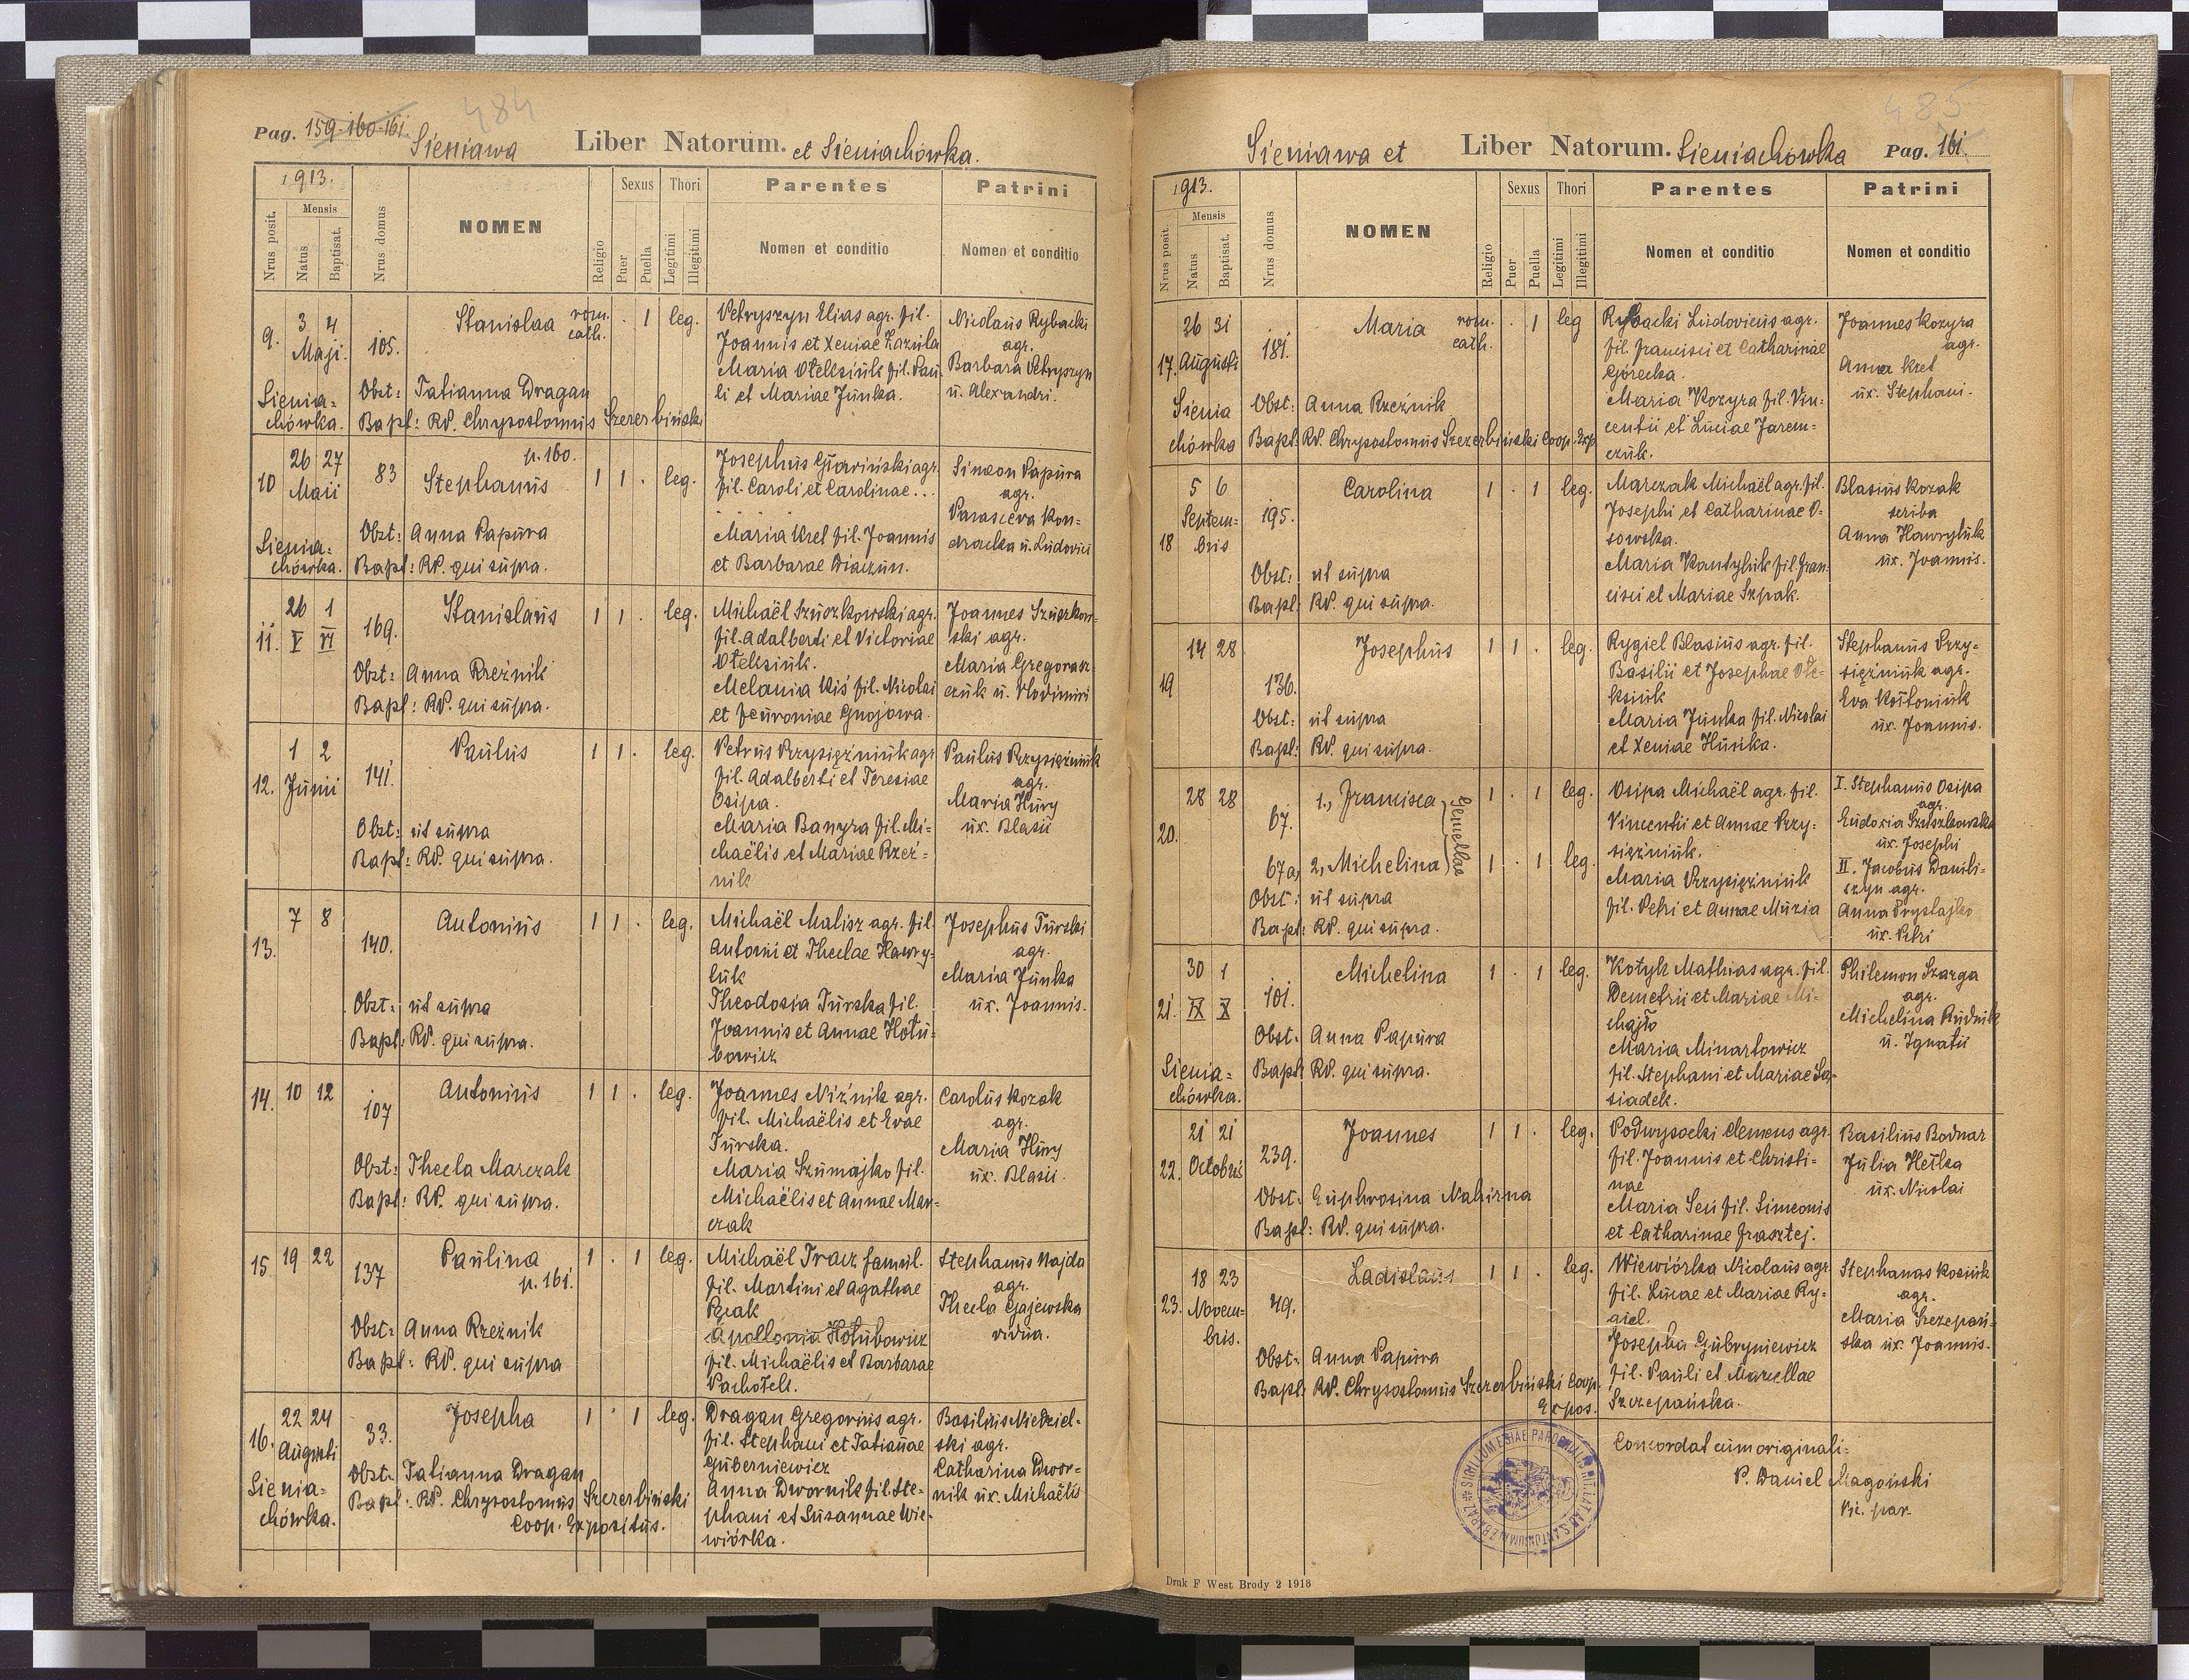 484
Pag. 159-160-161.
Sieniawa Liber Natorum. et Sieniachówka.
1913.
Nrus posit.
Mensis
Natus
Baptisat.
Nrus domus
NOMEN
Religio
Sexus
Puer
Puella
Thori
Legitimi
Illegitimi
Parentes
Nomen et conditio
Patrini
Nomen et conditio
9.
3 4
Maji.
Sienia=
chówka.
105.
Stanislaa
rom.
cath.
. 1 leg.
Obst: Tatianna Dragan
Bapt: RP. Chrysostomus Szczerbiński
Petryszyn Elias agr. fil.
Joannis et Xeniae Zazula
Maria Oleksiuk fil. Pau
li et Mariae Junka.
Nicolaus Rybacki
agr.
Barbara Petryszyn
u. Alexandri.
10
26 27
Maii
Sienia=
chówka.
83
p. 160.
Stephanus
1 1 . leg.
Obst: Anna Papura
Bapt: RP. qui supra.
Josephus Głowiński agr.
fil. Caroli et Carolinae...
Maria Krel fil. Joannis
et Barbarae Diaczun.
Simeon Papura
agr.
Parasceva Kon=
dracka u. Ludovici
11.
26 1
V VI
169.
Stanislaus
1 1 . leg.
Obst: Anna Rzeźnik
Bapt: RP. qui supra.
Michaël Szuszkowski agr.
fil. Adalberti et Victoriae
Oleksiuk.
Melania Kiś fil. Nicolai
et Feuroniae Gnojowa.
Joannes Szuszkow=
ski agr.
Maria Gregorasz=
czuk u. Vlodimiri
12.
1 2
Junii
141.
Paulus
1 1 . leg.
Obst: ut supra
Bapt: RP. qui supra.
Petrus Przysiężniuk agr
fil. Adalberti et Teresiae
Osipa.
Maria Banyra fil. Mi=
chaëlis et Mariae Rzeź=
nik
Paulus Przysiężniuk
agr.
Maria Hury
ux. Blasii
13.
7 8
140.
Antonius
1 1 . leg.
Obst: ut supra
Bapt: RP. qui supra.
Michaël Malisz agr. fil.
Antoni et Theclae Hawry=
luk
Theodosia Turska fil.
Joannis et Annae Hołu=
bowicz
Josephus Turski
agr.
Maria Junka
ux. Joannis.
14.
10 12
107
Antonius
1 1 . leg.
Obst: Thecla Marczak
Bapt: RP. qui supra.
Joannes Niźnik agr.
fil. Michaëlis et Evae
Turska.
Maria Szumajko fil.
Michaëlis et Annae Mar=
czak
Carolus Kozak
agr.
Maria Hury
ux. Blasii.
15
19 22
137
Paulina
p. 161.
1 . 1 leg.
Obst: Anna Rzeźnik
Bapt: RP. qui supra
Michaël Tracz famul.
fil. Martini et Agathae
Ptak
Apollonia Hołubowicz
fil. Michaëlis et Barbarae
Pachołek.
Stephanus Najda
agr.
Thecla Gajewska
vidua.
16.
22 24
Augusti
Sienia=
chówka.
33.
Josepha
1 . 1 leg.
Obst: Tatianna Dragan
Bapt: RP. Chrysostomus Szczerbiński
Coop. Expositus.
Dragan Gregorius agr.
fil. Stephani et Tatianae
Guberniewicz
Anna Dwornik fil. Ste=
phani et Susannae Wie=
wiórka.
Basilius Niedziel=
ski agr.
Catharina Dwor=
nik ux. Michaëlis
485
Sieniawa et Liber Natorum. Sieniachówka Pag. 161.
1913.
Nrus posit.
Mensis
Natus
Baptisat.
Nrus domus
NOMEN
Religio
Sexus
Puer
Puella
Thori
Legitimi
Illegitimi
Parentes
Nomen et conditio
Patrini
Nomen et conditio
17.
26 31
Augusti
Sienia
chówka
181.
Maria
rom.
cath.
. 1 leg
Obst: Anna Rzeźnik
Bapt: RP. Chrysostomus Szczerbiński Coop. Exp
Rybacki Ludovicus agr.
fil. Francisci et Catharinae
Górecka.
Maria Kozyra fil. Vin=
centii et Luciae Jarem=
czuk.
Joannes Kozyra
agr.
Anna Kret
ux. Stephani.
18
5 6
Septem=
bris
195.
Carolina
1 . 1 leg.
Obst: ut supra
Bapt: RP. qui supra.
Marczak Michaël agr. fil.
Josephi et Catharinae O=
sowska.
Maria Kantyluk fil. Fran=
cisci et Mariae Szpak.
Blasius Kozak
scriba
Anna Hawryluk
ux. Joannis.
19
14 28
136.
Josephus
1 1 . leg.
Obst: ut supra
Bapt: RP. qui supra.
Rygiel Blasius agr. fil.
Basilii et Josephae Ole=
ksiuk
Maria Junka fil. Nicolai
et Xeniae Huńka.
Stephanus Przy=
siężniuk agr.
Eva Kołtoniuk
ux. Joannis.
20.
28 28
67.
1., Francisca
1 . 1 leg.
67a, 2, Michelina
Gemellae
1 . 1 leg.
Obst: ut supra
Bapt: RP. qui supra.
Osipa Michaël agr. fil.
Vincentii et Annae Przy=
siężniuk.
Maria Przysiężniuk
fil. Petri et Annae Muzia
I. Stephanus Osipa
agr.
Eudoxia Szuszkowska
ux. Josephi
II. Jacobus Danili=
szyn agr.
Anna Prystajko
ux. Petri
21.
30 1
IX X
Sienia=
chówka.
101.
Michelina
1 . 1 leg.
Obst: Anna Papura
Bapt: RP. qui supra.
Kotyk Mathias agr. fil.
Demetrii et Mariae Mi=
chajło
Maria Minartowicz
fil. Stephani et Mariae Sa=
siadek.
Philemon Szarga
agr.
Michelina Rudnik
u. Ignatii
22.
21 21
Octobris
239.
Joannes
1 1 . leg.
Obst: Euphrosina Nahirna
Bapt: RP. qui supra.
Podwysocki Clemens agr.
fil. Joannis et Christi=
nae
Maria Seń fil. Simeonis
et Catharinae Frasztej.
Basilius Bodnar
Julia Hełka
ux. Nicolai
23.
18 23
Novem=
bris.
49.
Ladislaus
1 1 . leg.
Obst: Anna Papura
Bapt: RP. Chrysostomus Szczerbiński Coop.
Expos.
Wiewiórka Nicolaus agr.
fil. Lucae et Mariae Ry=
giel.
Josepha Gubryniewicz
fil. Pauli et Marcellae
Szczepańska.
Stephanas Kosiuk
agr.
Maria Szczepań=
ska ux. Joannis.
Concordat cum originali=
P. Daniel Magoński
Vic. par.
Druk F West Brody 2 1918